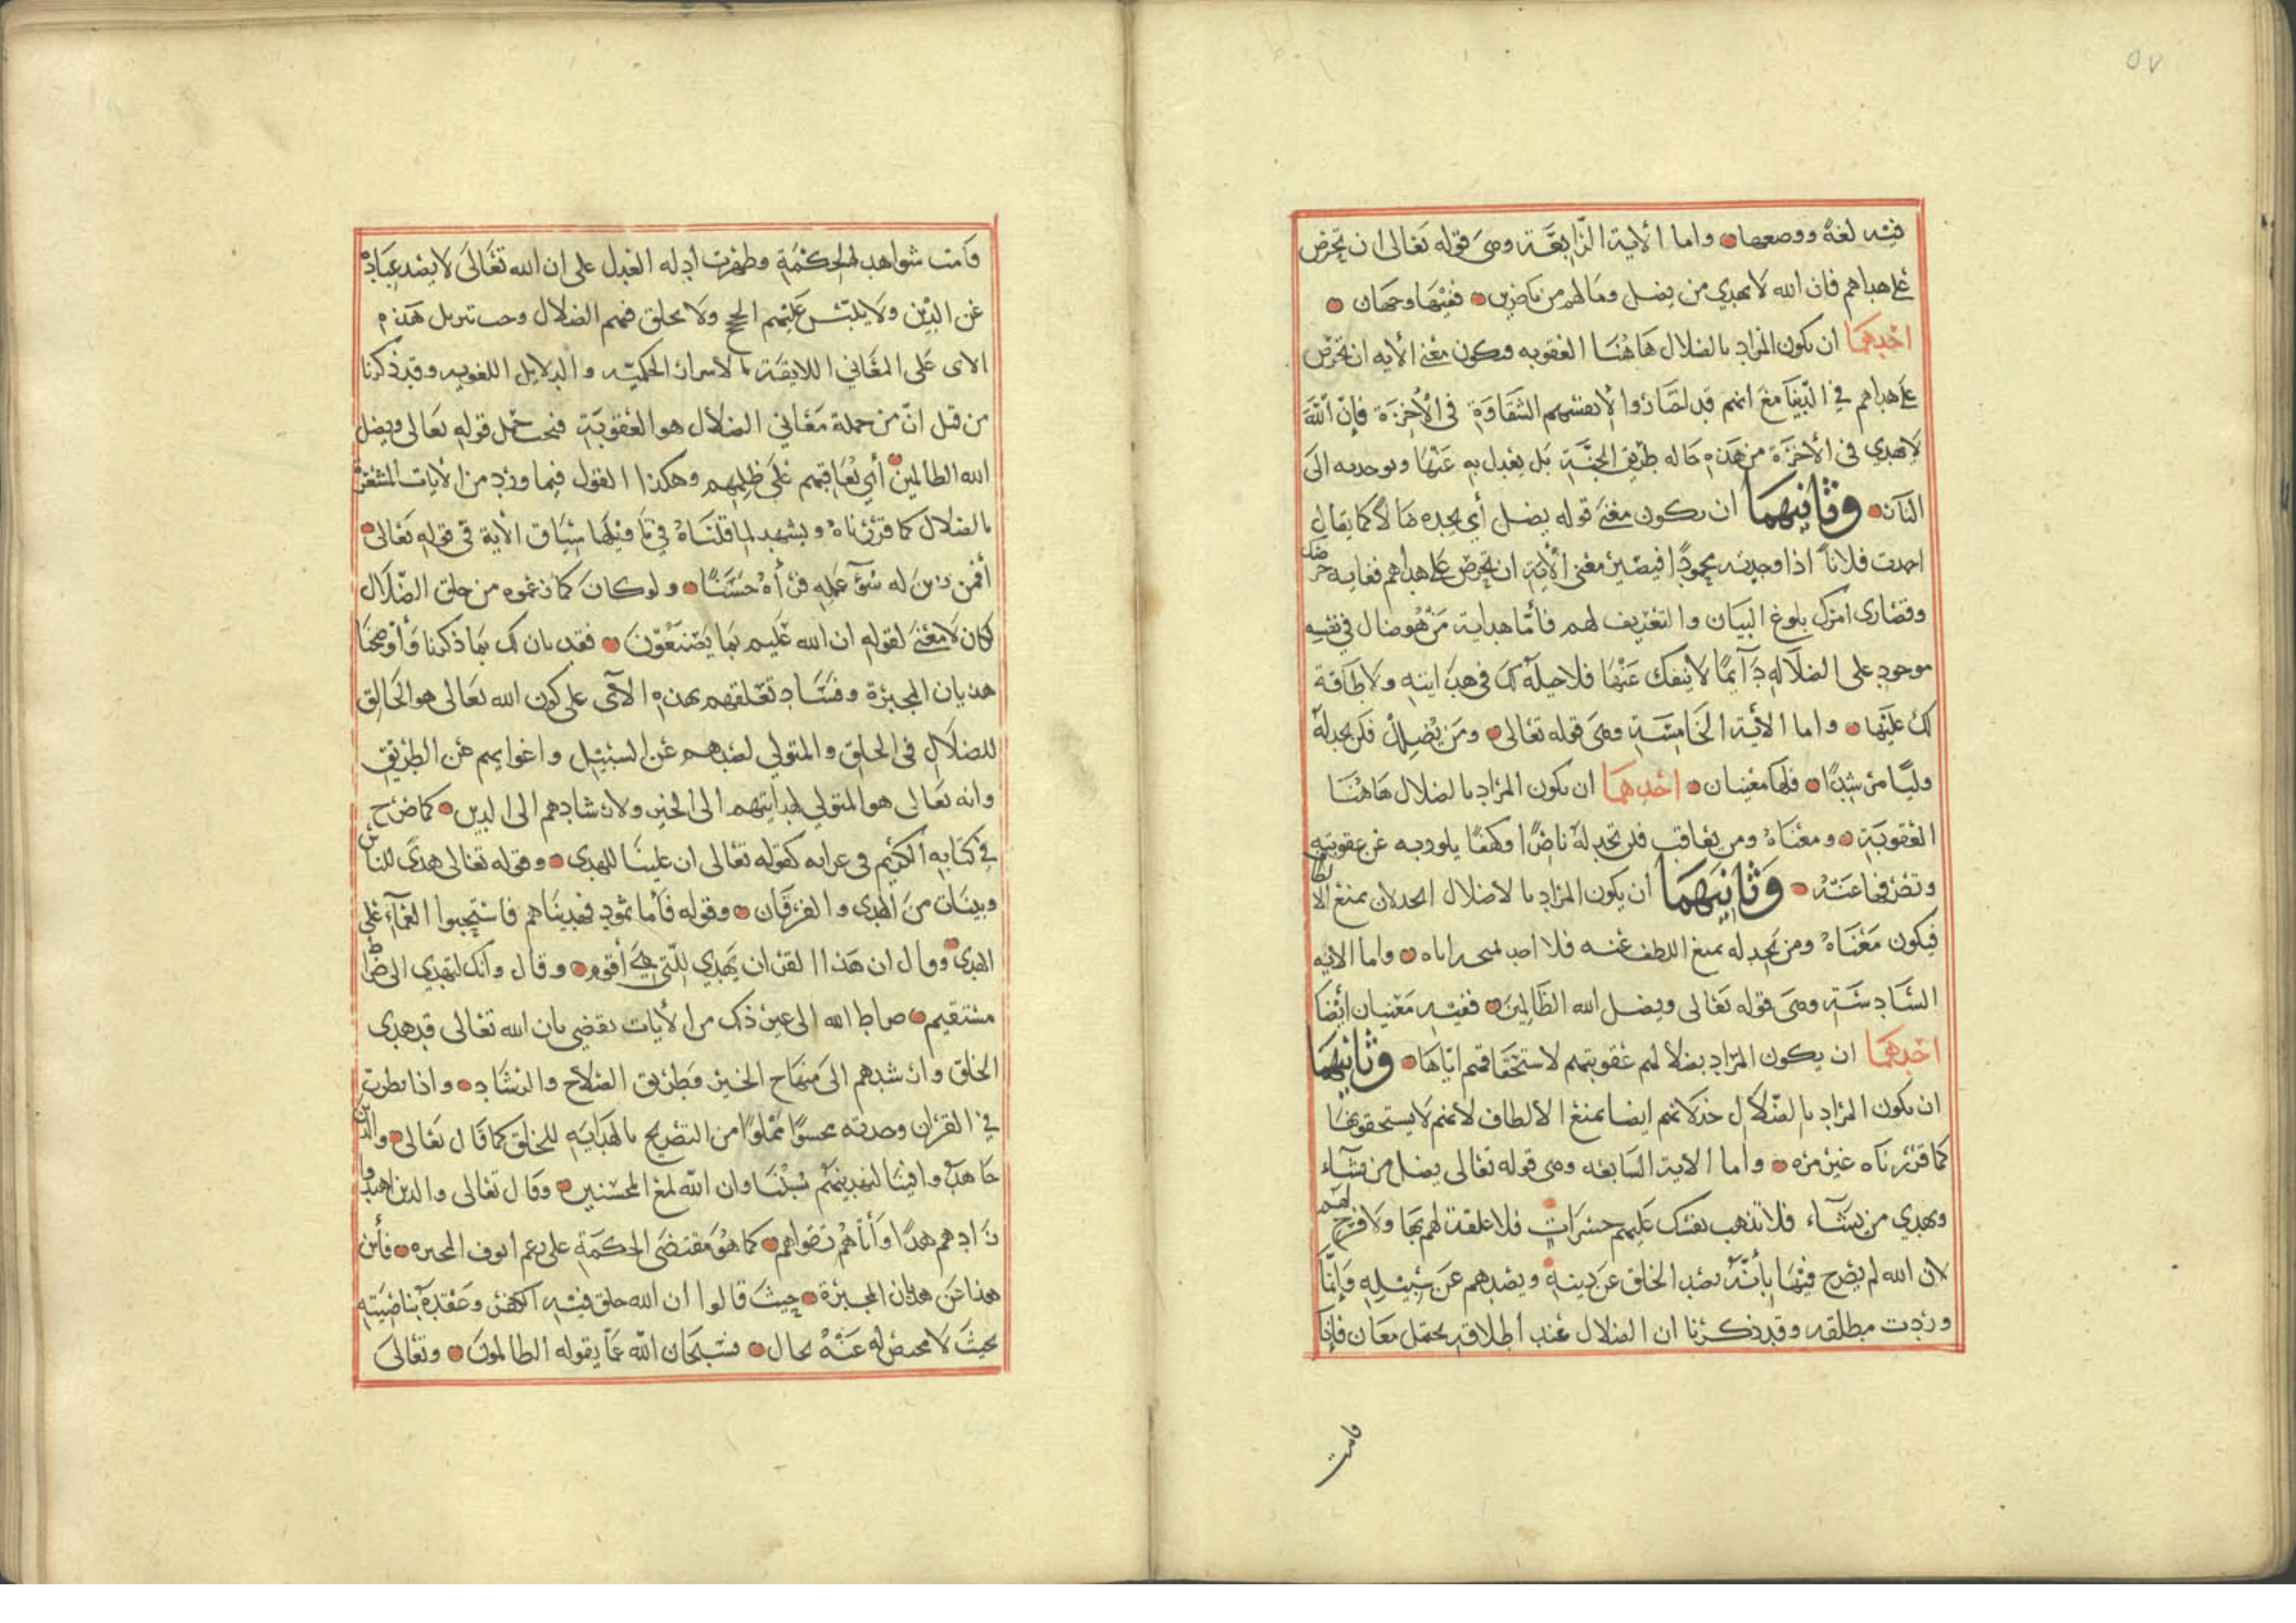 ٥٧
فيه لغةً ووضعها واما الاية الرابعة وهي قوله تعالى ان تحرص
على هداهم فان الله لا يهدي من يضل وما لهم من ناصرين ففيها وجهان
احدهما ان يكون المراد بالضلال هاهنا العقوبه ويكون معنى الايه ان تحرص
على هداهم في الدنيا مع انهم قد اختاروا لانفسهم الشقاوة في الآخرة فإن الله
لا يهدي في الآخرة من هذه حاله طريق الجنة بل يعدل به عنها ويوجه به الى
النار وثانيهما ان يكون معنى قوله يضل أي يجده ضالا كما يقال
احمدت فلاناً اذا وجدته محموداً فيصير معنى الآية ان تحرص على هداهم فغاية حرصك
وقصارى امرك بلوغ البيان والتعريف لهم فأما هداية من هو ضال في نفسه
موجود على الضلاله دآئماً لا ينفك عنها فلا حيلة لك في هدايته ولا طاقة
لك عليها واما الآية الخامسة وهي قوله تعالى ومن يضلل فلن تجد له
وليًا مرشدًا فلها معنيان احدهما ان يكون المراد بالضلال هاهنا
العقوبة ومعناه ومن يعاقب فلن تجد له ناصرًا وكهفًا يلوذ به عن عقوبته
وتصرفها عنه وثانيهما ان يكون المراد بالاضلال الخذلان بمنع الالطاف
فيكون معناه ومن نخذله بمنع اللطف عنه فلا احد لمنحه اياه واما الايه
السادسة وهي قوله تعالى ويضل الله الظالمين ففيه معنيان أيضا
احدهما ان يكون المراد بضلالهم عقوبتهم لاستحقاقهم اياها وثانيهما
ان يكون المراد بالضلال خذلانهم ايضا بمنع الالطاف لانهم لا يستحقونها
كما قررناه غير مره واما الاية السابعه وهي قوله تعالى يضل من يشآء
ويهدي من يشآء فلا تذهب نفسك عليهم حسرات فلا علقة لهم بها ولا فرج لهم
لان الله لم يصرح فيها بأنه يصد الخلق عن دينه ويصدهم عن سبيله وانما
وردت مطلقه وقد ذكرنا ان الضلال عند اطلاقه يحتمل معان فإذا
قامت
قامت شواهد الحكمة وظهرت ادله العدل على ان الله تعالى لا يصد عباده
عن الدين ولا يلبس عليهم الحجج ولا يخلق فيهم الضلال وجب تنزيل هذه
الاي على المعاني اللائقة بالاسرار الحكميه والدلايل اللغويه وقد ذكرنا
من قبل انّ من جملة معاني الضلال هو العقوبة فيجب حمل قوله تعالى ويضل
الله الظالمين أي يعاقبهم على ظلمهم وهكذا القول فيما ورد من الآيات المشعرة
بالضلال كما قررناه ويشهد لما قلناه في تاويلها سياق الآية في قوله تعالى
أفمن زين له سوٓء عمله فرآه حسنًا ولو كان كما زعموه من خلق الضلال
لكان لا معنى لقوله ان الله عليم بما يصنعون فقد بان لك بما ذكرنا وأوضحنا
هذيان المجبرة وفساد تعلقهم بهذه الآي على كون الله تعالى هو الخالق
للضلال في الخلق والمتولي لصدهم عن السبيل واغوايهم عن الطريق
وانه تعالى هو المتولي لهدايتهم الى الخير ولارشادهم الى الدين كما صرح
في كتابه الكريم في غير آيه كقوله تعالى ان علينا للهدى وقوله تعالى هدىً للناس
وبينات من الهدى والفرقان وقوله فأما ثمود فهديناهم فاستحبوا العمآء على
الهدى وقال ان هذا القرآن يهدي للتي هي أقوم وقال وانك لتهدي الى صراط
مستقيم صراط الله الى غير ذلك من الآيات تقضي بان الله تعالى قد هدى
الخلق وارشدهم الى منهاج الخير وطريق الصلاح والرشاد واذا نظرت
في القرآن وجدته محشوًا مملوًا من التصريح بالهداية للخلق كما قال تعالى والذين
جاهدوا فينا لنهدينهم سبلنا وان الله لمع المحسنين وقال تعالى والذين اهتدوا
زادهم هدًا وآتاهم تقواهم كما هو مقتضى الحكمة على رغم انوف المجبره فأين
هذا عن هذيان المجبرة حيث قالوا ان الله خلق فيه الكفر وعقده بناصيته
بحيث لا محيص له عنه بحال فسبحان الله عما يقوله الظالمون وتعالى